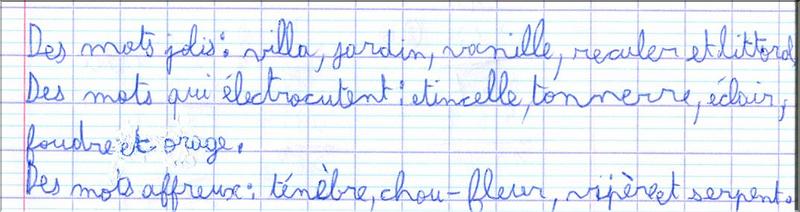 Des mots jolis : villa, jardin, vanille, reculer et littoral
Des mots qui électrocutent : etincelle, tonnerre, éclair,
foudre et orage.
Des mots affreux : ténèbre, chou-fleur, vipère et serpent.